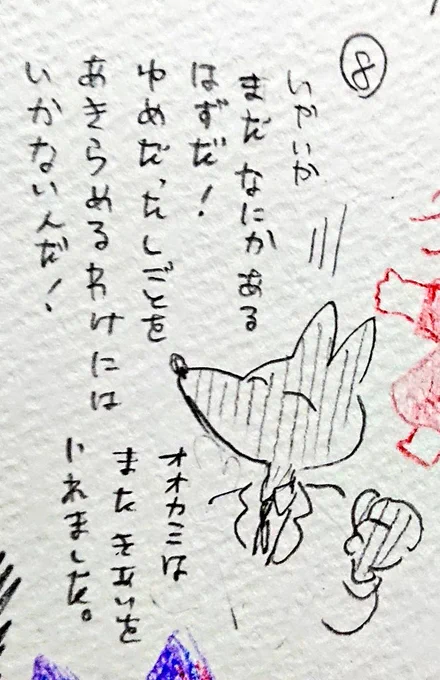 ⑧
いやいや
まだ なにか ある
はずだ！
ゆめだったしごとを
あきらめるわけには
いかないんだ！
オオカミは
また きあいを
いれました。